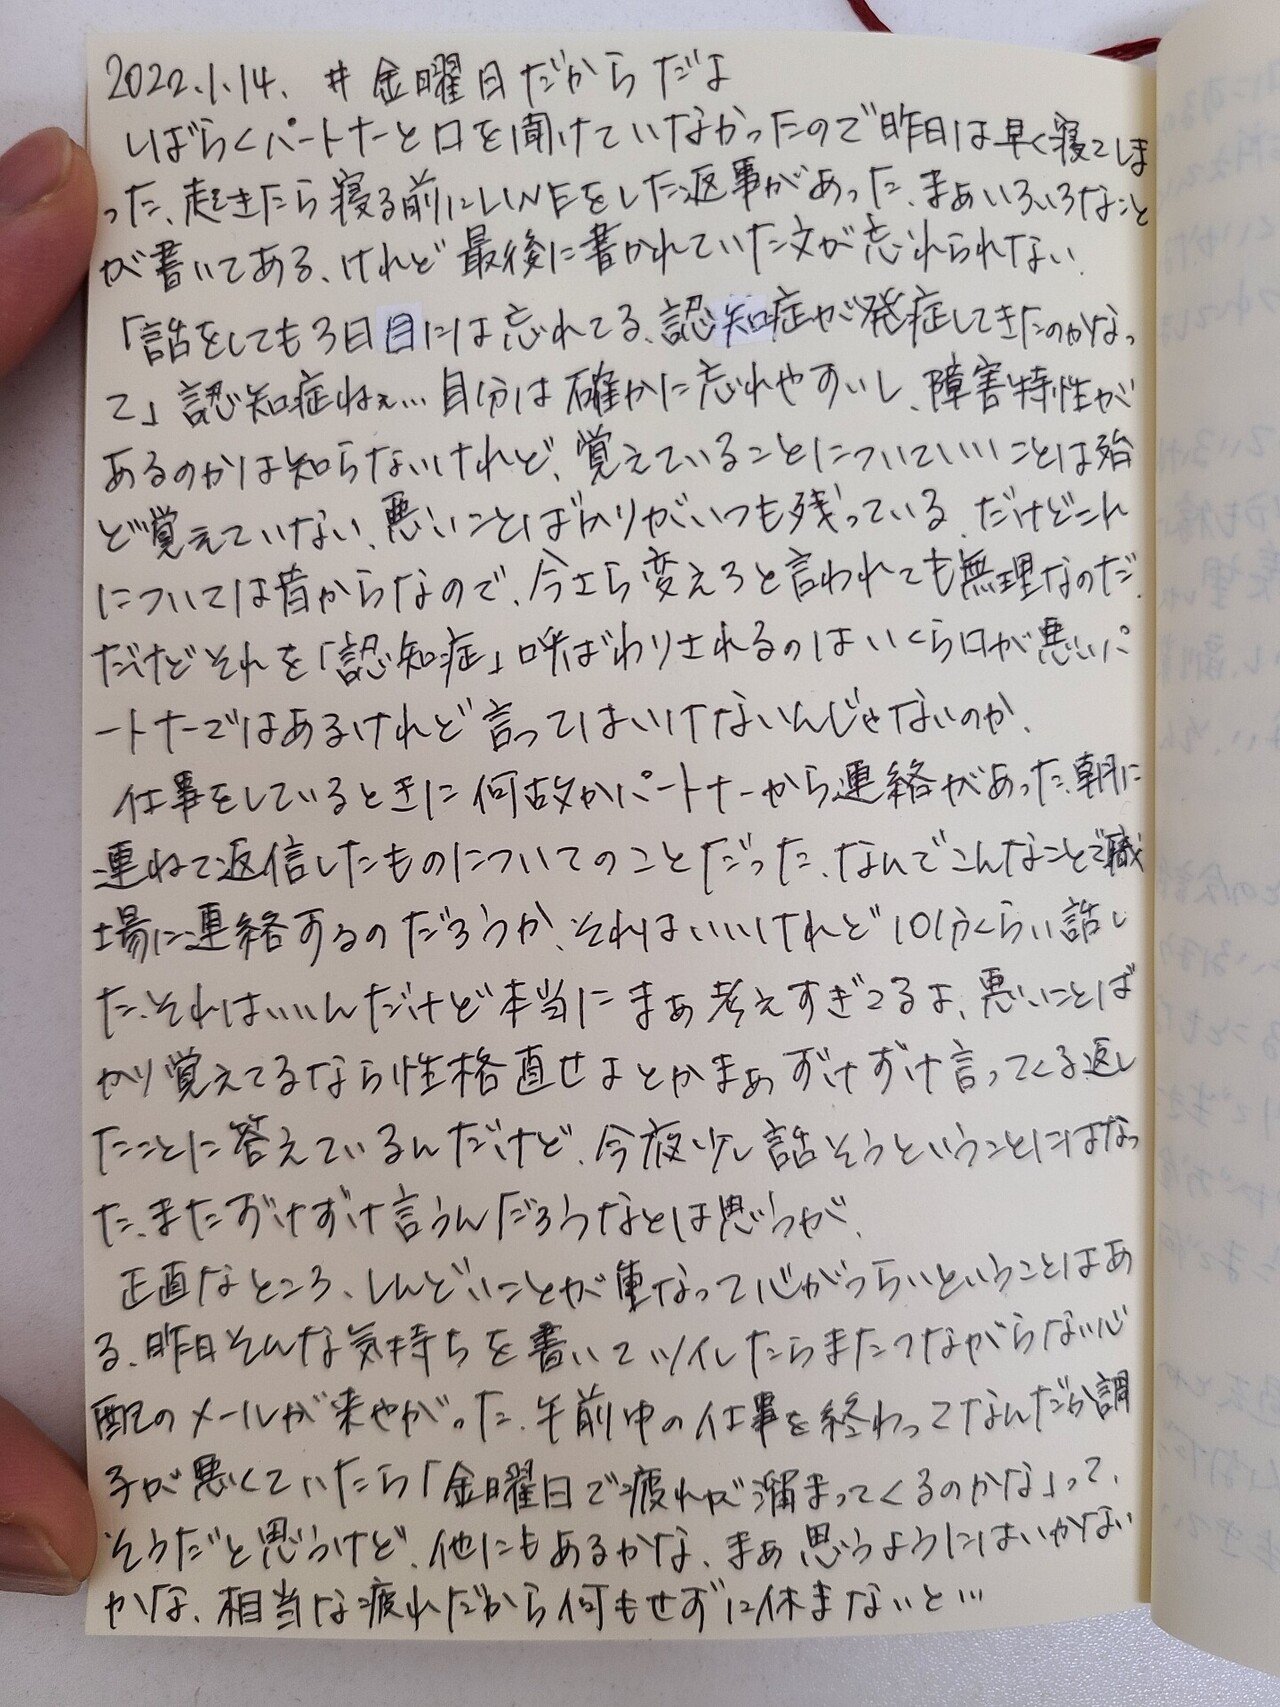 2022.1.14. #金曜日だからだよ
しばらくパートナーと口を聞けていなかったので昨日は早く寝てしま
った、起きたら寝る前にLINEをした返事があった、まあいろいろなこと
が書いてある、けれど最後に書かれていた文が忘れられない
「話をしても3日目には忘れてる、認知症が発症してきたのかなっ
て」認知症ねぇ…自分は確かに忘れやすいし、障害特性が
あるのかは知らないけれど、覚えていることについていいことは殆
ど覚えていない、悪いことばかりがいつも残っている だけどこれ
については昔からなので、今さら変えろと言われても無理なのだ、
だけどそれを「認知症」呼ばわりされるのはいくら口が悪いパ
ートナーではあるけれど言ってはいけないんじゃないのか、
仕事をしているときに何故かパートナーから連絡があった、朝に
連ねて返信したものについてのことだった、なんでこんなことで職
場に連絡するのだろうか、それはいいけれど10分くらい話し
た、それはいいんだけど本当にまぁ考えすぎてるよ、悪いことば
かり覚えてるなら性格直せよとかまぁずけずけ言ってくる返し
たことに答えているんだけど、今夜少し話そうということにはなっ
た、またずけずけ言うんだろうなとは思うが、
正直なところ、しんどいことが重なって心がつらいということはあ
る、昨日そんな気持ちを書いてツイしたらまたつながらない心
配のメールが来やがった、午前中の仕事を終わってなんだか調
子が悪くていたら「金曜日で疲れが溜まってくるのかな」って、
そうだと思うけど、他にもあるかな、まぁ思うようにはいかない
かな、相当な疲れだから何もせずに休まないと…